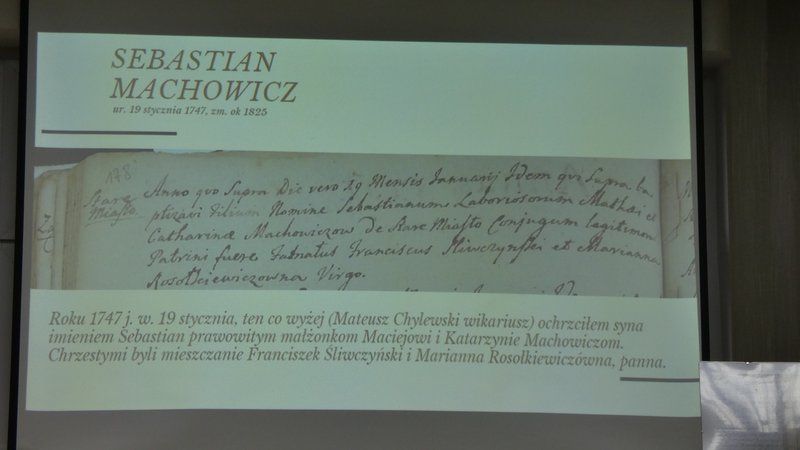 SEBASTIAN
MACHOWICZ
ur. 19 stycznia 1747, zm. ok 1825
178
Stare
Miasto
Anno quo Supra Die vero 19 Mensis Januarij Idem qvi Supra ba
ptizavi Filium Nomine Sebastianum Laboriosorum Mathæi et
Catharinæ Machowiczow de Stare Miasto Conjugum legitimorum
Patrini fuere Franciscus Sliwczynski et Marianna
Virgo.
Roku 1747 j. w. 19 stycznia, ten co wyżej (Mateusz Chylewski wikariusz) ochrzciłem syna
imieniem Sebastian prawowitym małżonkom Maciejowi i Katarzynie Machowiczom.
Chrzestymi byli mieszczanie Franciszek Śliwczyński i Marianna Rosołkiewiczówna, panna.